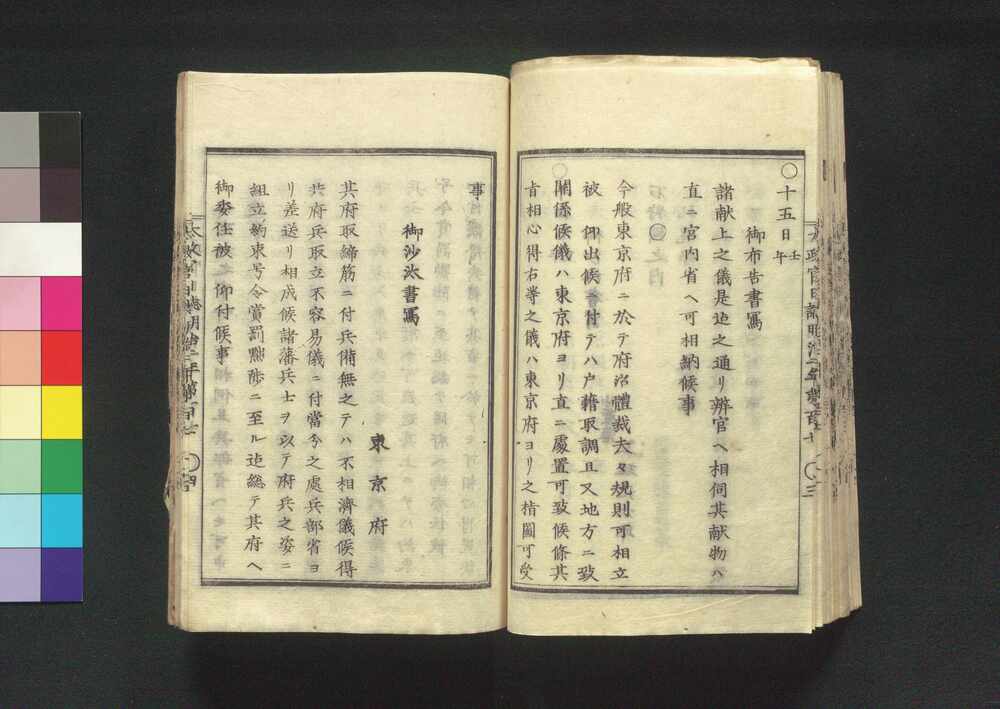 ○十五日 壬午
御布告書寫
諸献上之儀是迄之通リ辨官ヘ相伺其献物ハ
直ニ宮内省ヘ可相納候事
今般東京府ニ於テ府治體裁夫々規則可相立
被 仰出候ニ付テハ戸籍取調且又地方ニ致
關係候儀ハ東京府ヨリ直ニ處置可致候條其
旨相心得右等之儀ハ東京府ヨリ之指圖可受
事
御沙汰書寫
東京府
其府取締筋ニ付兵備無之テハ不相濟儀候得
共府兵取立不容易儀ニ付當今之處兵部省ヨ
リ差送リ相成候諸藩兵士ヲ以テ府兵之姿ニ
組立約束号令賞罰黜陟ニ至ル迄総テ其府ヘ
御委任被 仰付候事